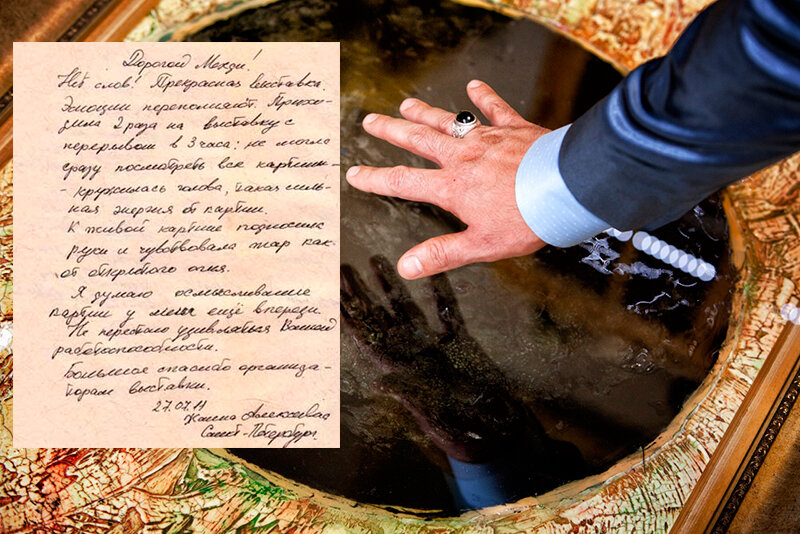 Дорогой Мехди!
Нет слов! Прекрасная выставка.
Эмоции переполняют. Прихо-
дила 2 раза на выставку с
перерывом в 3 часа: не могла
сразу посмотреть все картины -
- кружилась голова, такая силь-
ная энергия от картин.
К живой картине подносила
руки и чувствовала жар как
от открытого огня.
Я думаю осмысливание
картин у меня ещё впереди.
Не перестаю удивляться Вашей
работоспособности.
Большое спасибо организа-
торам выставки.
27.07.11
Жанна Алексеевна
Санкт-Петербург